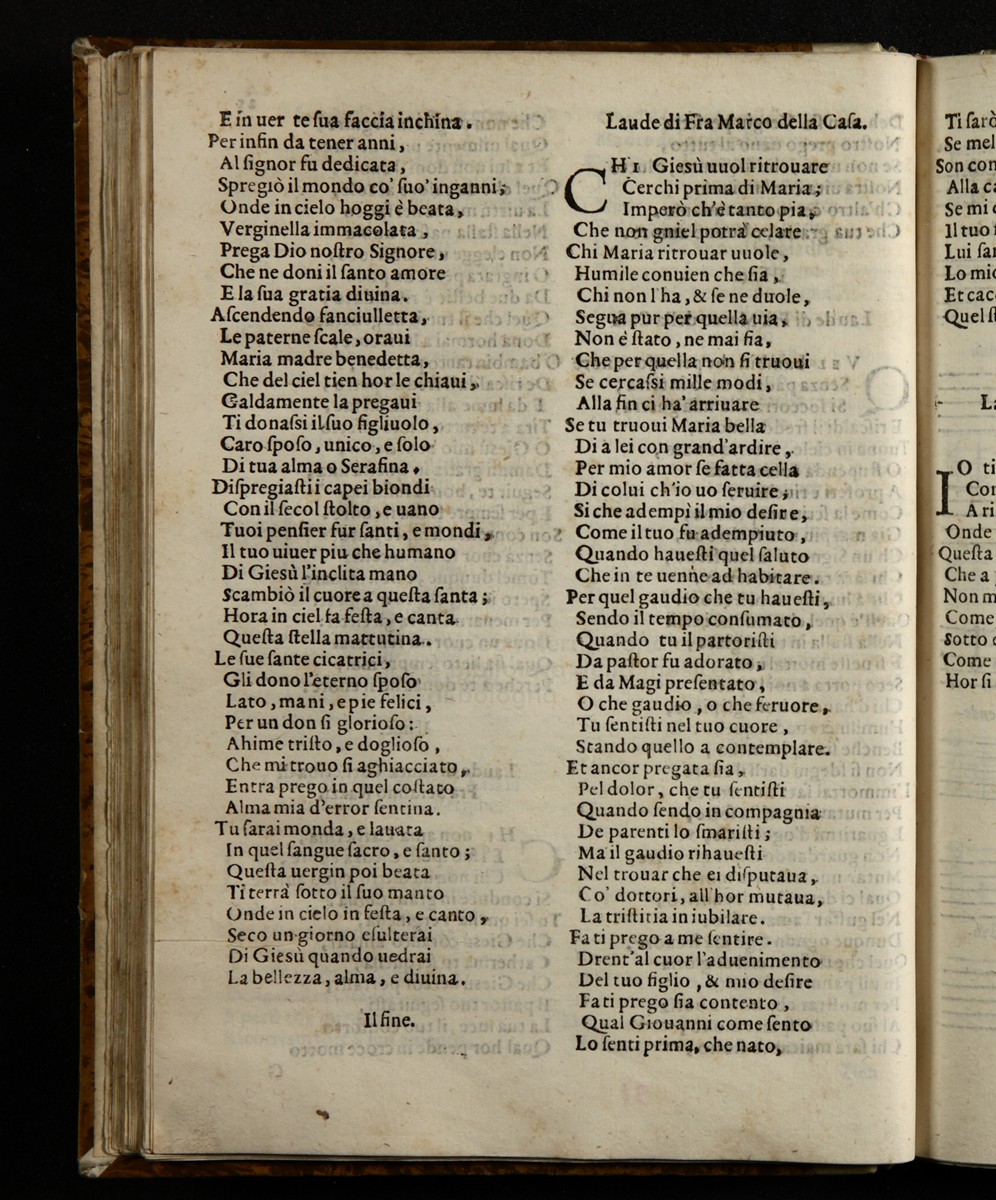 E in uer te ſua faccia inchina.
Per infin da tener anni,
Al ſignor fu dedicata,
Spregiò il mondo co' ſuo' inganni;
Onde in cielo hoggi è beata,
Verginella immacolata,
Prega Dio noſtro Signore,
Che ne doni il ſanto amore
E la ſua gratia diuina.
Aſcendendo fanciulletta,
Le paterne ſcale, oraui
Maria madre benedetta,
Che del ciel tien hor le chiaui,
Caldamente la pregaui
Ti donaſsi il ſuo figliuolo,
Caro ſpoſo, unico, e ſolo
Di tua alma o Serafina.
Diſpregiaſti i capei biondi
Con il ſecol ſtolto, e uano
Tuoi penſier fur ſanti, e mondi,
Il tuo uiuer piu che humano
Di Gieſù l'inclita mano
Scambiò il cuore a queſta ſanta;
Hora in ciel fa feſta, e canta
Queſta ſtella mattutina.
Le ſue ſante cicatrici,
Gli dono l'eterno ſpoſo
Lato, mani, e pie felici,
Per un don ſi glorioſo:
Ahime triſto, e doglioſo,
Che mi trouo ſi aghiacciato,
Entra prego in quel coſtato
Alma mia d'error ſentina.
Tu ſarai monda, e lauata
In quel ſangue ſacro, e ſanto;
Queſta uergin poi beata
Ti terrà ſotto il ſuo manto
Onde in cielo in feſta, e canto,
Seco un giorno eſulterai
Di Gieſù quando uedrai
La bellezza, alma, e diuina.
Il fine.
Laude di Fra Marco della Caſa.
CHI Gieſù uuol ritrouare
Cerchi prima di Maria;
Imperò ch'è tanto pia,
Che non gniel potrà celare
Chi Maria ritrouar uuole,
Humile conuien che ſia,
Chi non l'ha, & ſe ne duole,
Segua pur per quella uia,
Non è ſtato, ne mai fia,
Che per quella non ſi truoui
Se cercaſsi mille modi,
Alla fin ci ha' arriuare
Se tu truoui Maria bella
Di a lei con grand'ardire,
Per mio amor ſe fatta cella
Di colui ch'io uo ſeruire;
Si che adempi il mio deſire,
Come il tuo fu adempiuto,
Quando haueſti quel ſaluto
Che in te uenne ad habitare.
Per quel gaudio che tu haueſti,
Sendo il tempo conſumato,
Quando tu il partoriſti
Da paſtor fu adorato,
E da Magi preſentato,
O che gaudio, o che feruore,
Tu ſentiſti nel tuo cuore,
Stando quello a contemplare.
Et ancor pregata ſia,
Pel dolor, che tu ſentiſti
Quando ſendo in compagnia
De parenti lo ſmariſti;
Ma il gaudio rihaueſti
Nel trouar che ei diſputaua,
Co' dottori, all'hor mutaua,
La triſtitia in iubilare.
Fa ti prego a me ſentire.
Drent'al cuor l'aduenimento
Del tuo figlio, & mio deſire
Fa ti prego ſia contento,
Qual Giouanni come ſento
Lo ſenti prima, che nato,
Ti ſarò
Se mel
Son con
Alla
Se mi
Il tuo
Lui
Lo mio
Et
Quel
IO ti
A ri
Onde
Queſta
Che a
Non m
Come
Sotto
Come
Hor ſi